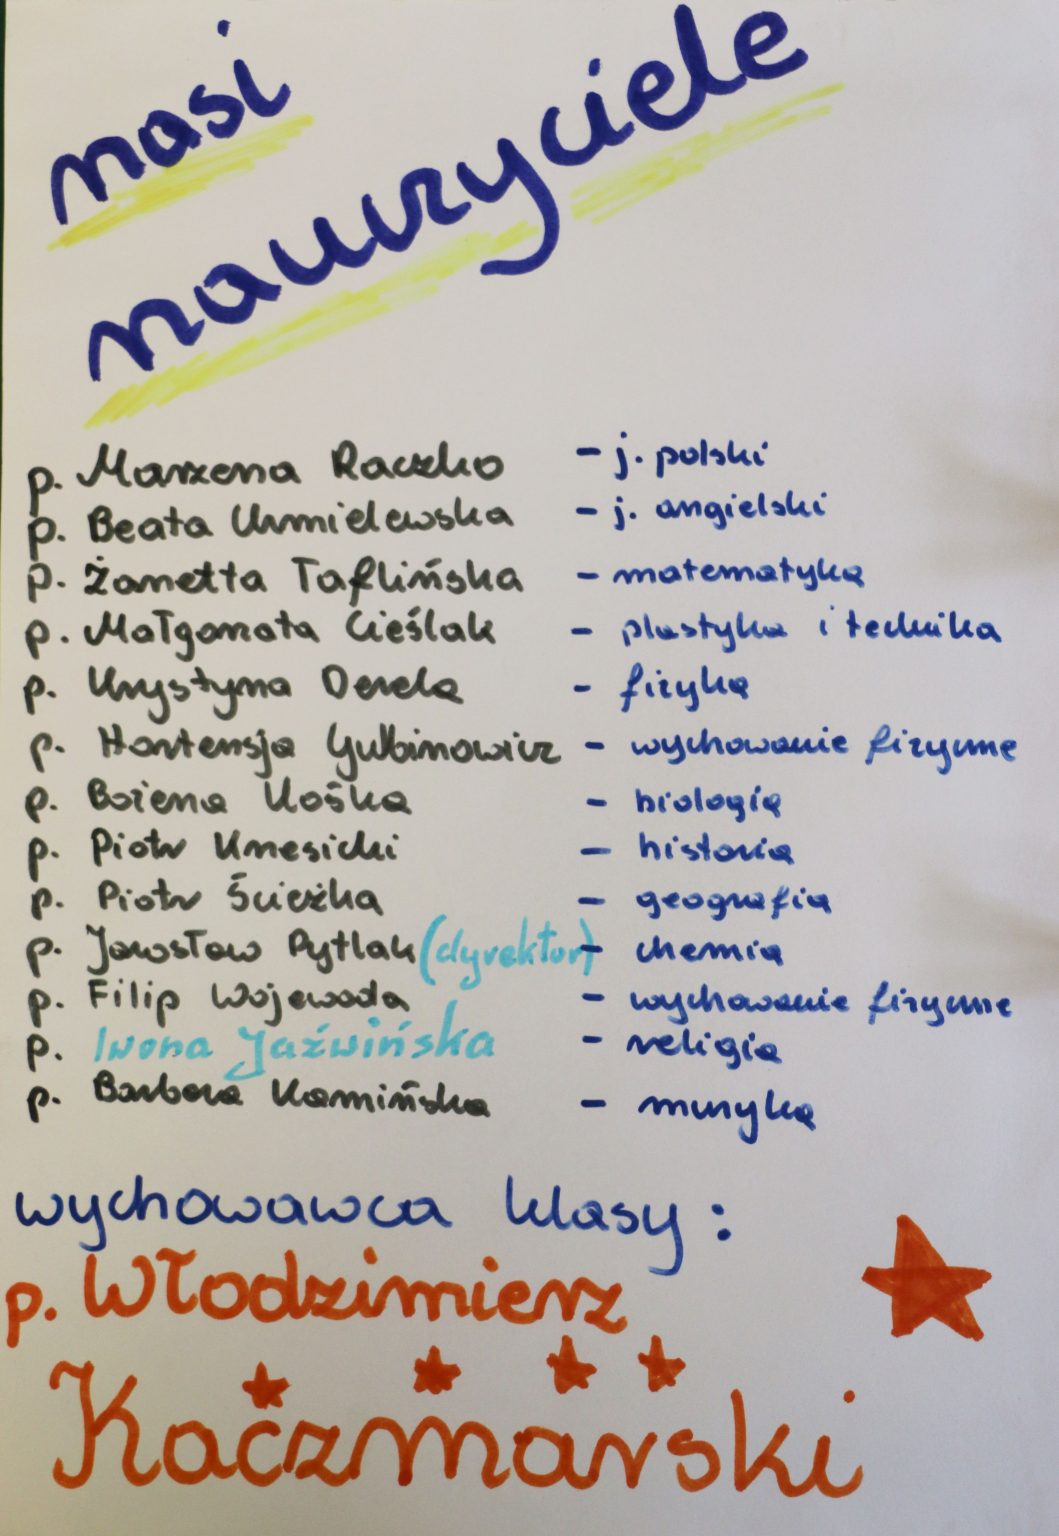 nasi
nauczyciele
p. Marzena Raczko - j. polski
p. Beata Chmielewska - j. angielski
p. Żanetta Taflińska - matematyka
p. Małgorzata Cieślak - plastyka i technika
p. Krystyna Dereda - fizyka
p. Hortensja Gulbinowicz - wychowanie fizyczne
p. Bożena Kośka - biologia
p. Piotr Knesicki - historia
p. Piotr Ścieżka - geografia
p. Jarosław Pytlak (dyrektor) - chemia
p. Filip Wojewoda - wychowanie fizyczne
p. Iwona Jaźwińska - religia
p. Barbara Kamińska - muzyka
wychowawca klasy:
p. Włodzimierz
Kaczmarski